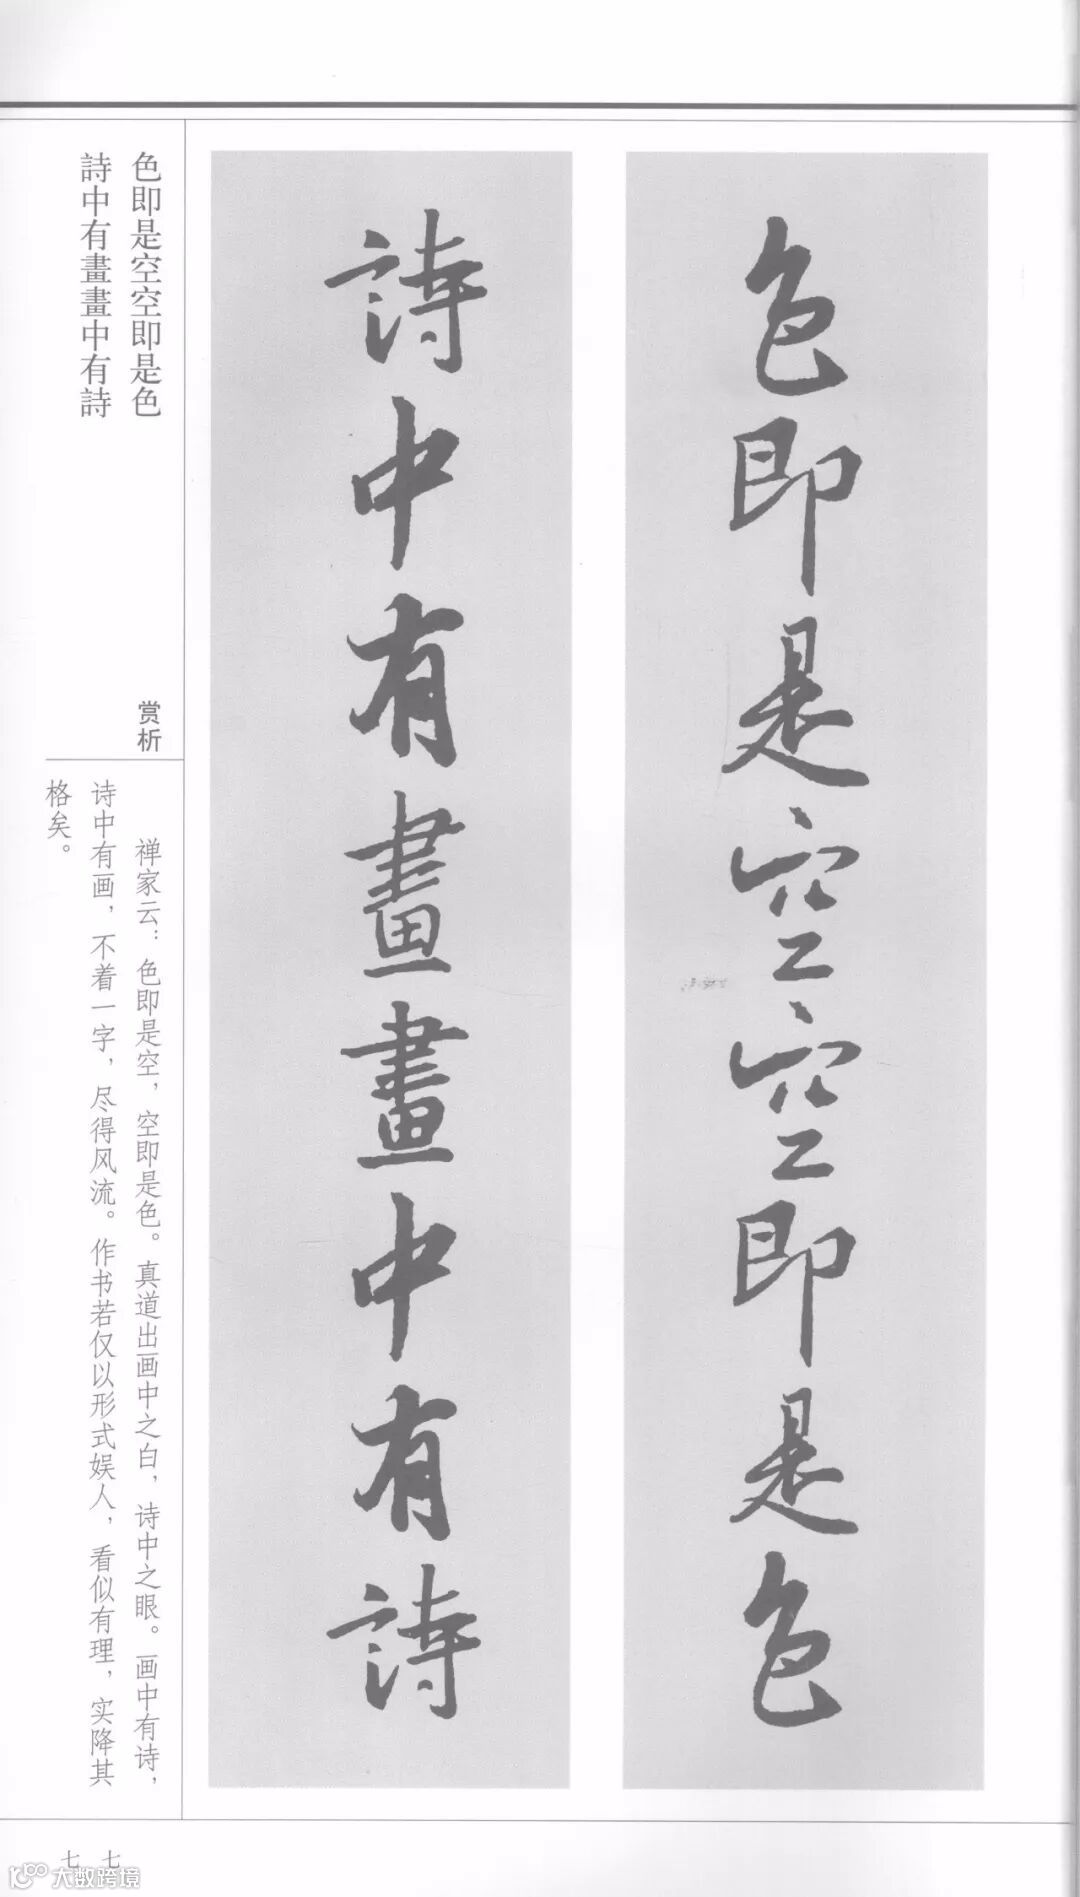 色即是空空即是色
詩中有畫畫中有詩
色即是空空即是色
詩中有畫畫中有詩
赏析
禅家云：色即是空，空即是色。真道出画中之白，诗中之眼。画中有诗，
诗中有画，不着一字，尽得风流。作书若仅以形式娱人，看似有理，实降其
格矣。
七七
大数跨境